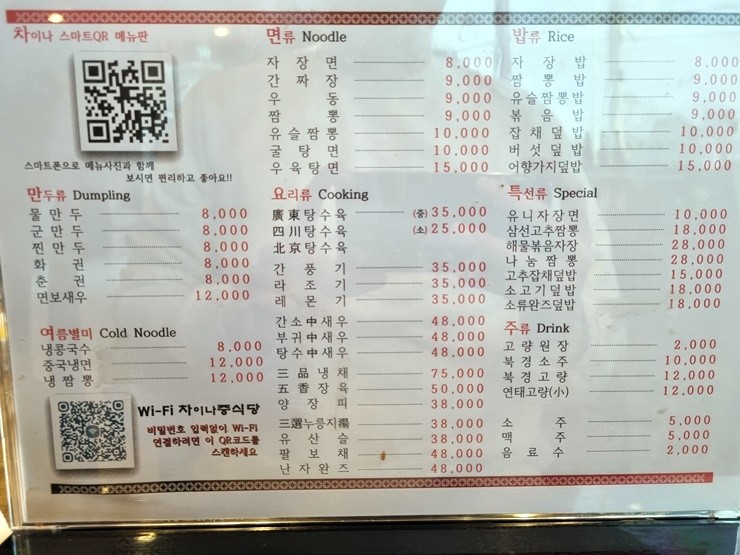 차이나 스마트QR 메뉴판
스마트폰으로 메뉴사진과 함께
보시면 편리하고 좋아요!!
만두류 Dumpling
물만두 8,000
군만두 8,000
찐만두 8,000
화권 8,000
춘권 8,000
면보새우 12,000
여름별미 Cold Noodle
냉콩국수 8,000
중국냉면 12,000
냉짬뽕 12,000
Wi-Fi 차이나중식당
비밀번호 입력없이 Wi-Fi
연결하려면 이 QR코드를
스캔하세요
면류 Noodle
자장면 8,000
간짜장 9,000
우동 9,000
짬뽕 9,000
유슬짬뽕 10,000
굴탕면 10,000
우육탕면 15,000
요리류 Cooking
廣東탕수육 (중) 35,000
四川탕수육 (소) 25,000
北京탕수육
간풍기 35,000
라조기 35,000
레몬기 35,000
간소中새우 48,000
부귀中새우 48,000
탕수中새우 48,000
三品냉채 75,000
五香장육 50,000
양장피 38,000
三選누룽지湯 38,000
유산슬 38,000
팔보채 48,000
난자완즈 48,000
밥류 Rice
자장밥 8,000
짬뽕밥 9,000
유슬짬뽕밥 9,000
볶음밥 9,000
잡채덮밥 10,000
버섯덮밥 10,000
어향가지덮밥 15,000
특선류 Special
유니자장면 10,000
삼선고추짬뽕 18,000
해물볶음자장 28,000
나눔짬뽕 28,000
고추잡채덮밥 15,000
소고기덮밥 18,000
소류완즈덮밥 18,000
주류 Drink
고량원장 2,000
북경소주 10,000
북경고량 12,000
연태고량(小) 12,000
소주 5,000
맥주 5,000
음료수 2,000